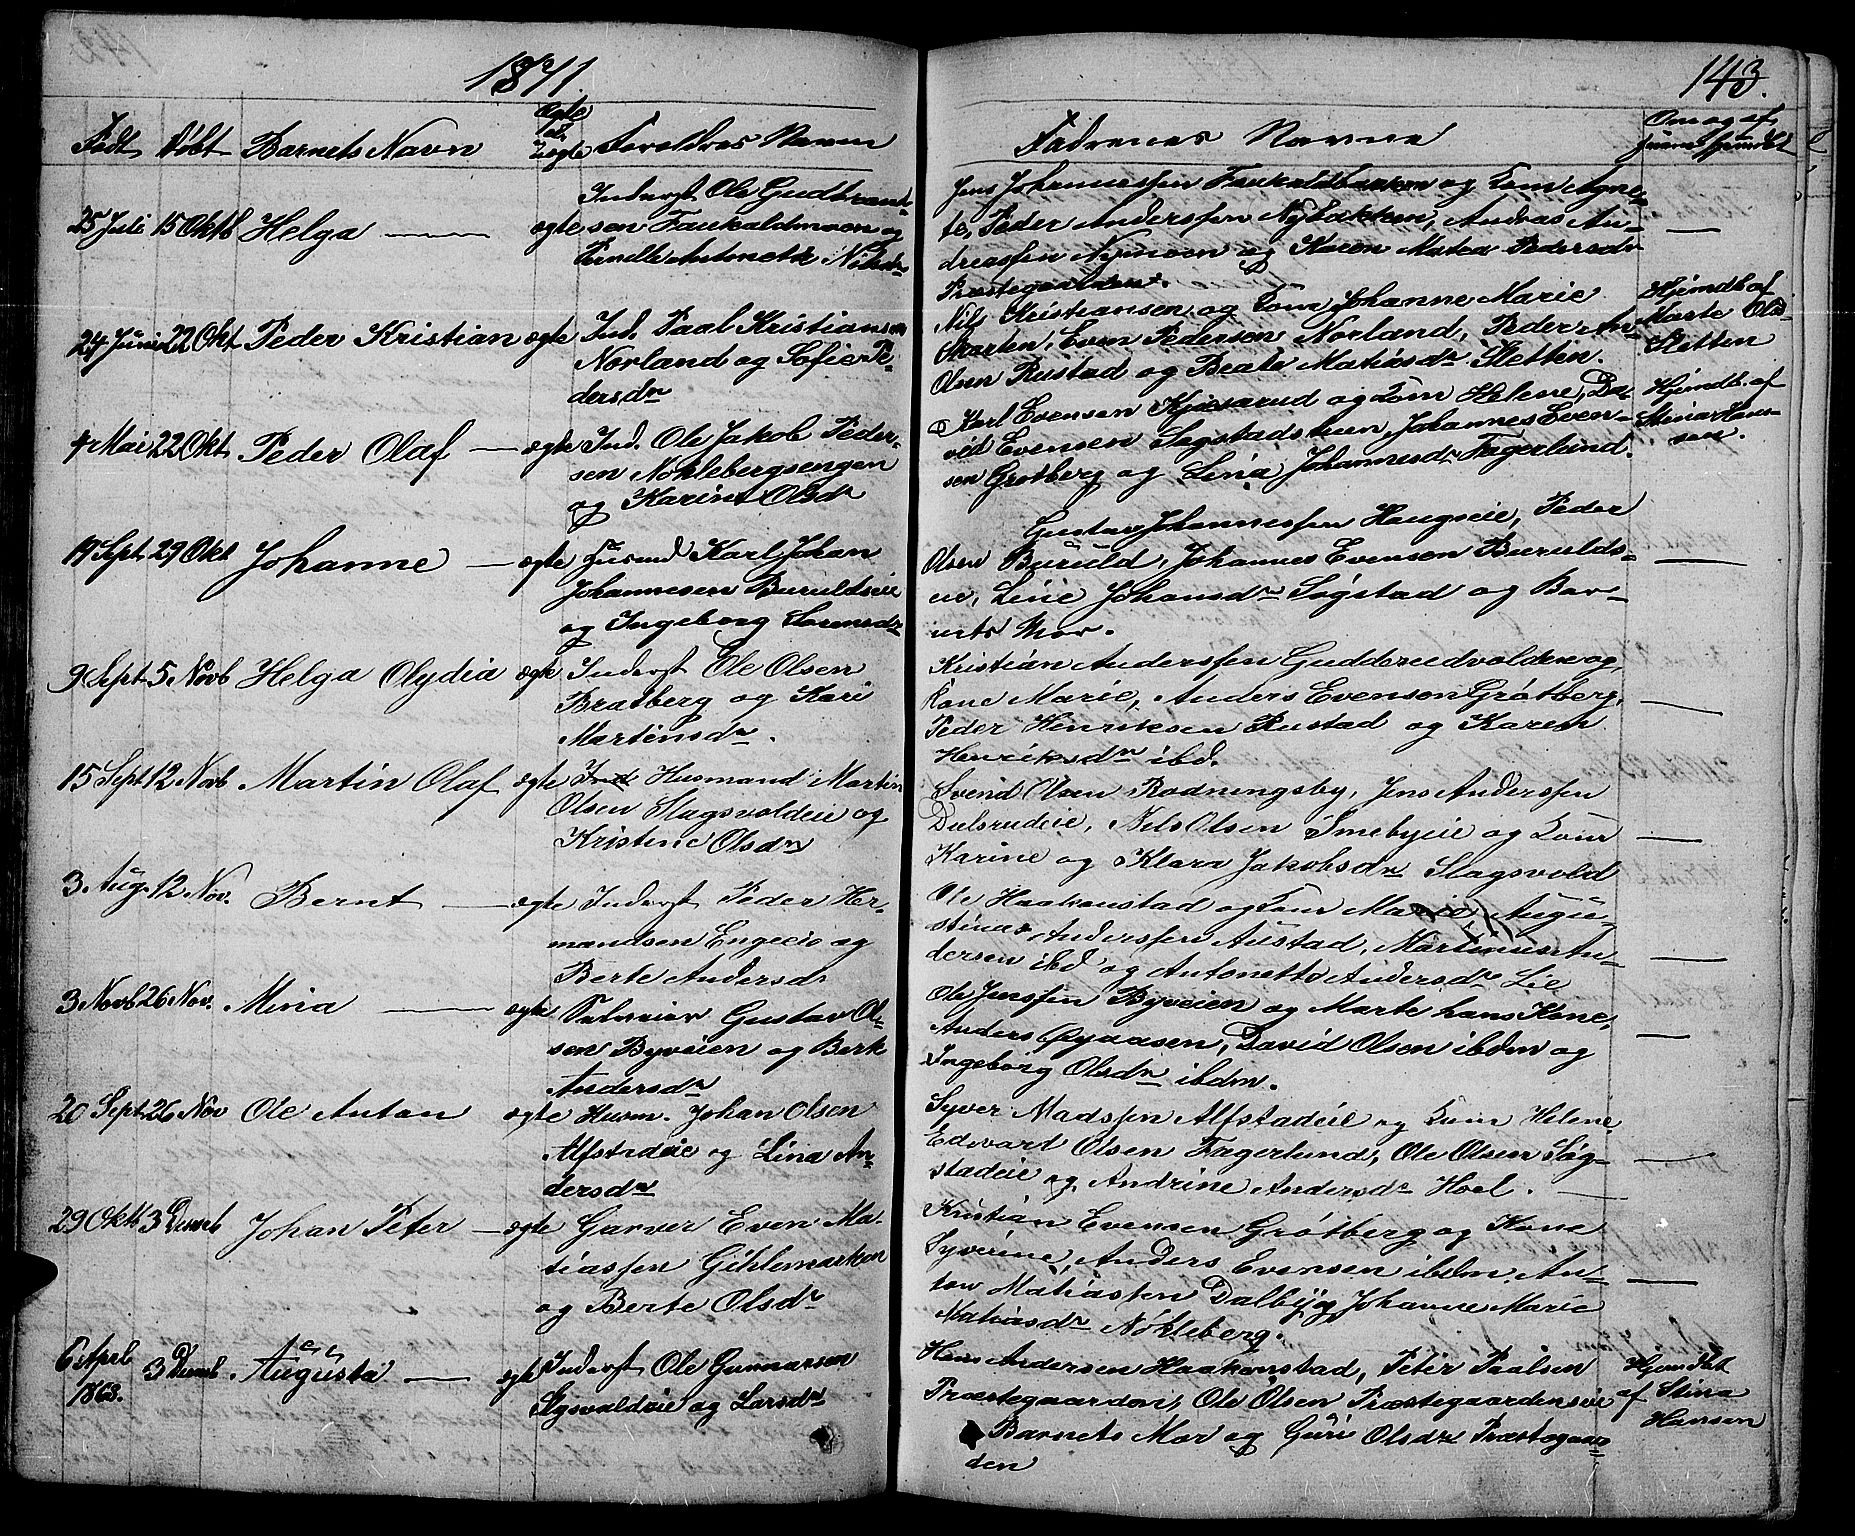 1871.
143.
Født Døbt Barnets Navn Ægte el. Uægte Foreldres Navn
Fadrenes Navne
Om og af hvem hjemdøbt
25 Juli 15 Oktb Helga — ægte Inderst Ole Gudbrant-
sen Faukaldmoen og
Pernille Antonette Nilsdr
Jens Johannessen Faukaldbakken og Kone Agne-
te, Peder Anderssen Nybakken, Andras An-
dreassen Nymoen og Karen Matea Pedersdr
Præstegaarden. —
24 Juni 22 Okt Peder Kristian ægte Ind. Paal Kristiansen
Norland og Sofie Pe-
dersdr
Nils Kristiansen og Kone Johanne Marie
Skarten, Even Pedersen Norland, Peder An-
Olsen Rustad og Beate Matiasdr Sletten.
Hjemdb af
Marte Ols-
Sletten
4 Mai 22 Okt Peder Olaf — ægte Ind. Ole Jakob Peder-
sen Noklebergsengen
og Karine Olsdr
Karl Evensen Kjosarud og Kone Helene, Da-
vid Evensen Sagstadstuen, Johannes Even-
sen Grøtberg og Lina Johannesdr Fagerlund.
Hjemdb. af
Stina Han-
sen.
19 Sept 29 Okt Johanne — ægte Husmd Karl Johan
Johannesen Buruldseie
og Ingeborg Larsdr
Gustav Johannessen Haugseie, Peder
Olsen Buruld, Johannes Evensen Burulds-
eie, Line Johansdr Søgstad og Bar-
nets Mor. —
9 Sept 5 Novb Helga Olydia ægte Inderst Ole Olsen
Bratberg og Kari
Martinsdr.
Kristian Anderssen Gudderudvolden og
Kone Marie, Anders Evensen Grøtberg,
Peder Henriksen Rustad og Karen
Henriksdr ibd. —
15 Sept 12 Novb Martin Olaf ægte Ind Husmand Martin
Olsen Slagsvoldeie og
Kristine Olsdr
Svend Olsen Rodningsby, Jens Anderssen
Dulsrudeie, Nils Olsen Smebyeie og Kone
Karine og Klara Jakobsdr Slagsvold —
3 Aug. 12 Nov. Bernt — ægte Inderst Peder Her-
mandsen Engeeie og
Berte Andersdr
Ole Haakenstad og Kone Marie, Augu-
stinus Anderssen Austad, Martinus An-
dersen ibd og Antonette Andersdr Lie —
3 Novb 26 Nov. Mina — ægte Selveier Gustav Ol-
sen Byveien og Berte
Andersdr
Ole Jenssen Byveien og Marte hans Kone,
Anders Øyaasen, David Olsen ibdm og
Ingeborg Olsdr ibdm. —
20 Sept 26 Nov Ole Anton ægte Husm. Johan Olsen
Alfstadeie og Lina An-
dersdr
Syver Madssen Alfstadeie og Kone Helene,
Edvart Olsen Fagerlund, Ole Olsen Søg-
stadeie og Andrine Andersdr Hoel. —
29 Oktb 3 Decemb Johan Peter — ægte Garver Even Ma-
tiassen Gihlemarken
og Berte Olsdr
Kristian Evensen Grøtberg og Kone
Syverine, Anders Evensen ibdm, An-
ton Matiassen Dalby og Johanne Marie
Matiasdr Nökleberg. —
6 April
1863. 3 Decmb. Augusta — ægte Inderst Ole Gunnarsen
Slagsvoldeie og Larsdr
Hans Andersen Haakenstad, Peter Paalsen
Præstegaarden, Ole Olsen Præstegaardenseie
Barnets Mor og Guri Olsdr Præstegaar-
den
Hjemdøbt
af Stina
Hansen